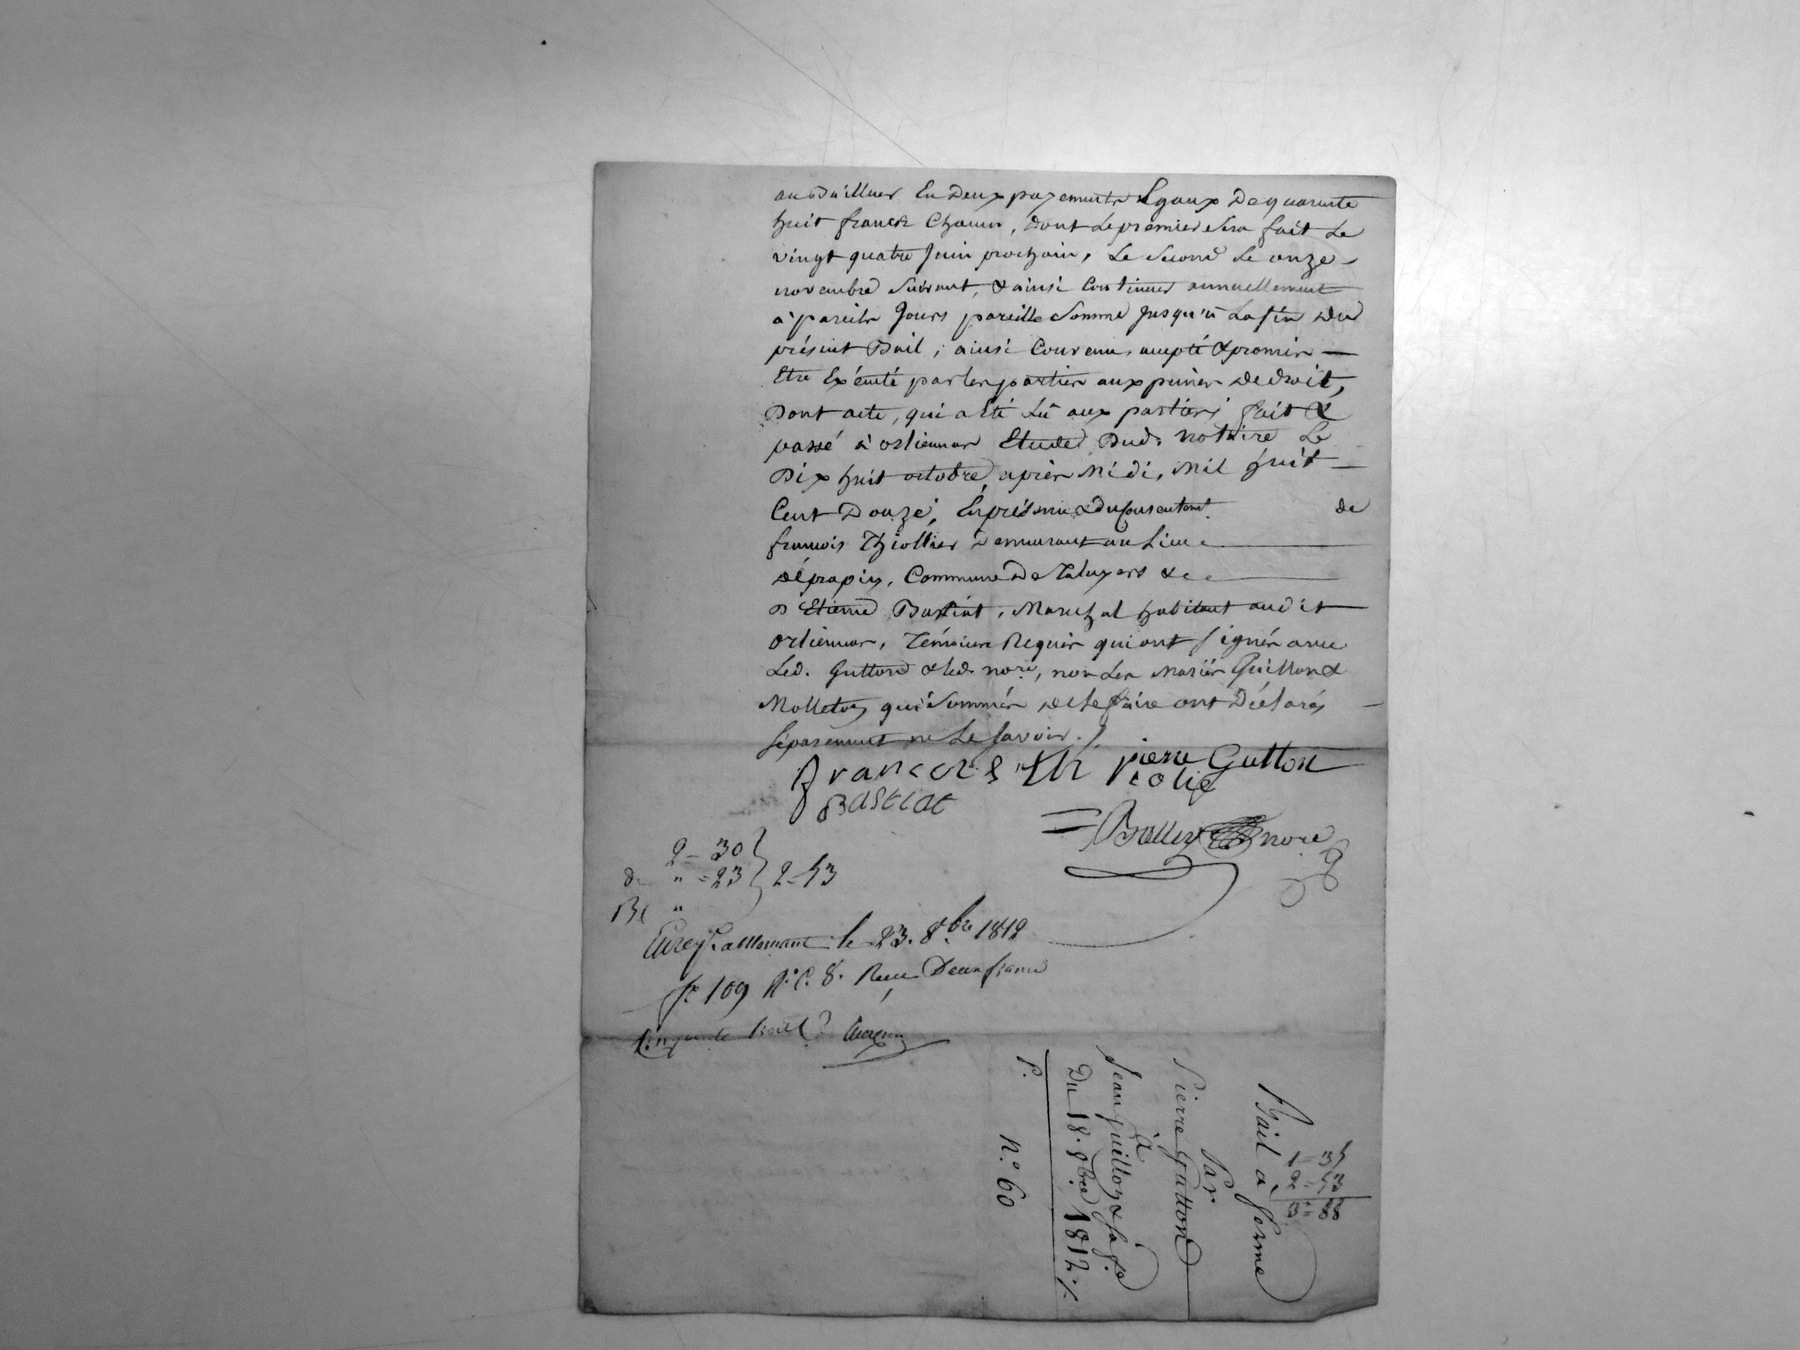 au bailleur En Deux payements Egaux De quarante
huit francs Chacun, dont Le premier Sera fait Le
vingt quatre Juin prochain, Le Second Le onze
novembre Suivant, & ainsi Continuer annuellement
à pareils Jours pareille Somme Jusqu'à La fin du
présent Bail; ainsi Convenu, accepté & promis
Etre Exécuté par les parties aux peines de droit,
Dont acte, qui a Eté Lû aux parties; fait &
passé à orlienas Etude Dud. Notaire Le
Dix huit octobre, après Midi, Mil huit
Cent Douze; En présence & du Consentemt. de
francois Thiollier Demeurant au Lieu
de prapin, Commune De Taluyers & de
Etienne Bastiat, Marechal habitant audit
orlienas, Témoins Requis qui ont Signés avec
Led. Gutton & led. nore., non Les Mariés Guillon &
Molleton qui Sommés de le faire ont Déclarés
Séparement ne Le Savoir./.
francois Th pierre Gutton
iolie
Bastiat
nore
2 = 30
d. " = 23 } 2 = 53
"
Enreg. a le 23. 8bre 1812
fo. 109 Ro. C. 8. Recu Deux francs
Cinquante
1 = 35
2 = 53
3 = 88
Bail à ferme
Par
Pierre Gutton
à
Jean Guillon & Sa fe.
Du 18. 8bre 1812./.
P. N.o 60